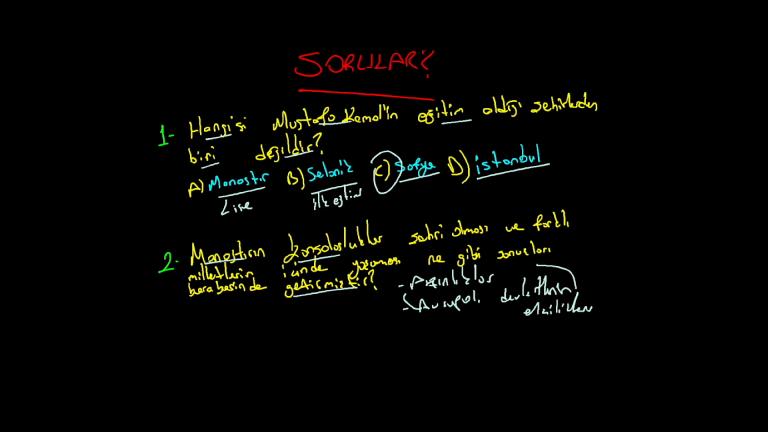 SORULAR?
1- Hangisi Mustafa Kemal'in eğitim aldığı şehirlerden
biri değildir?
A) Manastır B) Selanik C) Sofya D) istanbul
Lise ilk eğitim
2. Manastırın konsolosluklar şehri olması ve farklı
milletlerin içinde yaşaması ne gibi sonuçları
beraberinde getirmiştir?
- Azınlıklar
- Avrupalı devletlerin